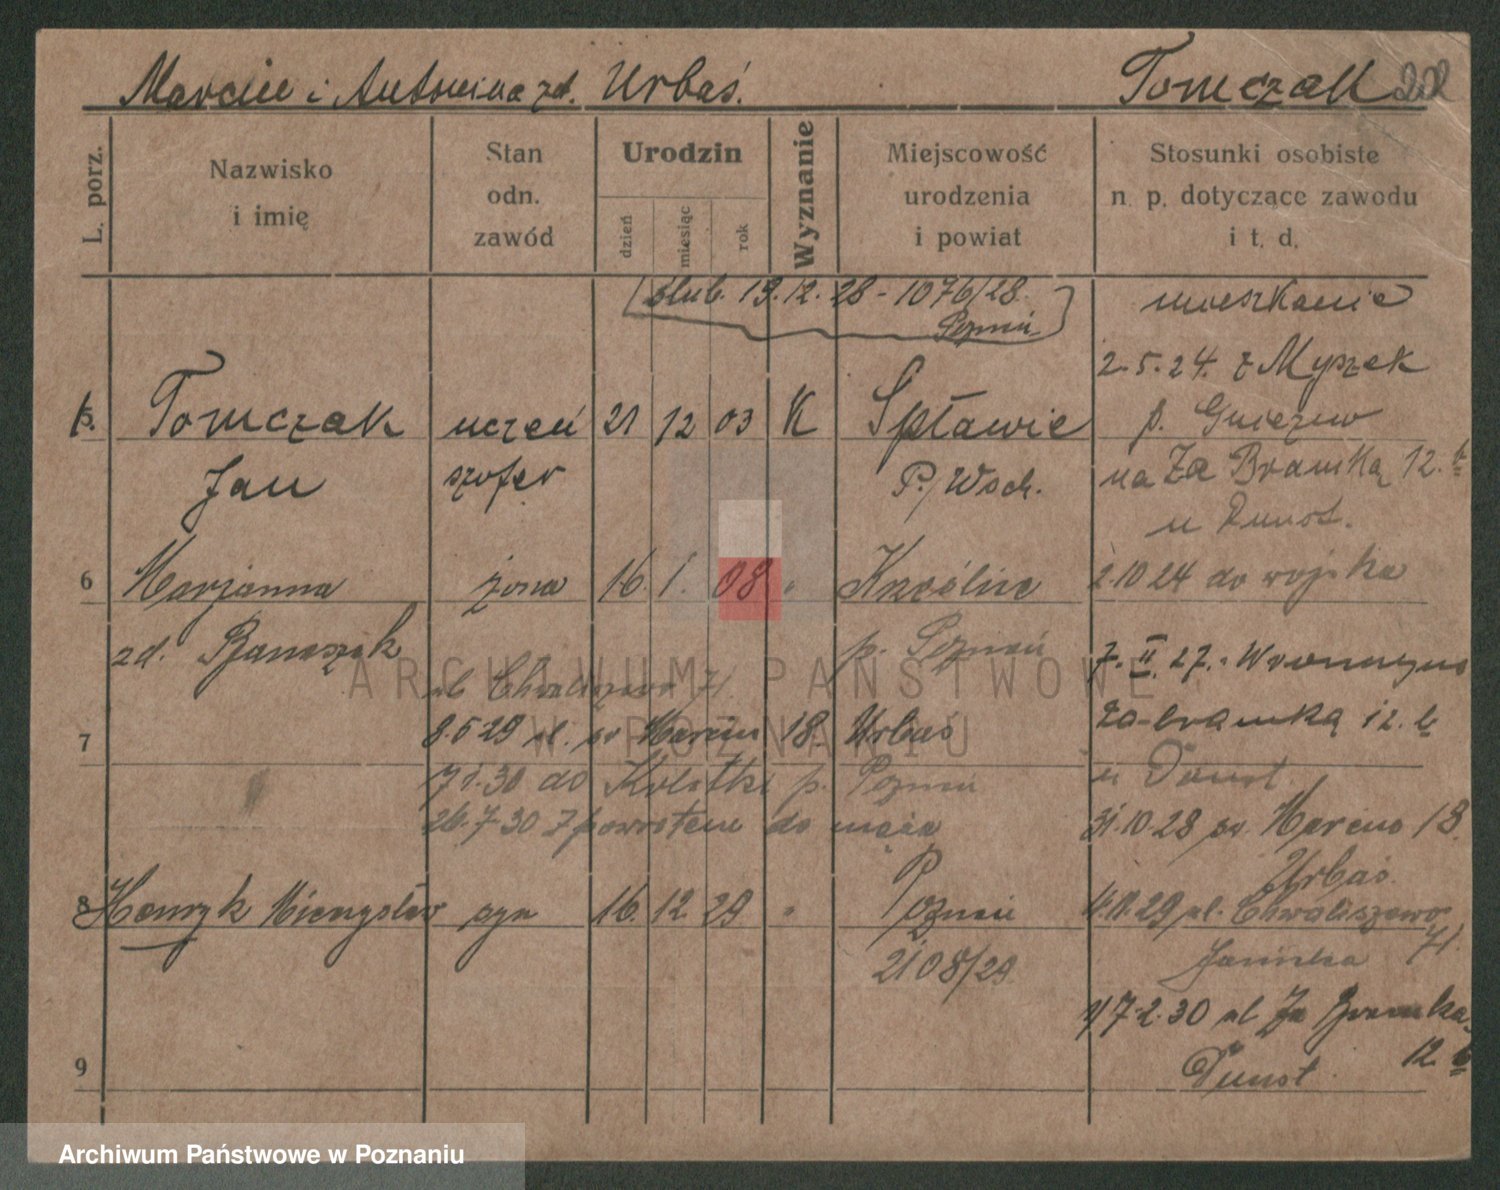 Marcin i Antonina zd. Urbaś. Tomczak
L. porz.
Nazwisko
i imię
Stan
odn.
zawód
Urodzin
dzień
miesiąc
rok
Wyznanie
Miejscowość
urodzenia
i powiat
Stosunki osobiste
n. p. dotyczące zawodu
i t. d.
ślub. 19.12.28 - 1076/28.
Poznań
mieszkanie
2.5.24. z Myszek
5. Tomczak uczeń 21 12 03 K Spławie p. Gniezno
Jan szofer P./Wsch. na Za Bramką 12.b
u Dunst.
6 Marjanna żona 16. 1. 08 " 2.10 24 do wojska
zd. Banaszak p. Poznań 7. II. 27. Wronczyna
ul Chwaliszewo 71 za bramką 12. b
7 8.5 29 ul. św Marcin 18. Urbaś
u Dunst.
7 1.30 do p. Poznań
26.7.30 z powrotem do męża 31.10.28 św. Marcin 18.
Urbaś.
8 Henryk Mieczysław syn 16. 12. 29 " Poznań 4.11.29 ul. Chwaliszewo
71.
2108/29
17.2.30 ul Za Bramką
12. b
9 Dunst.
ARCHIWUM PAŃSTWOWE
W POZNANIU
Archiwum Państwowe w Poznaniu